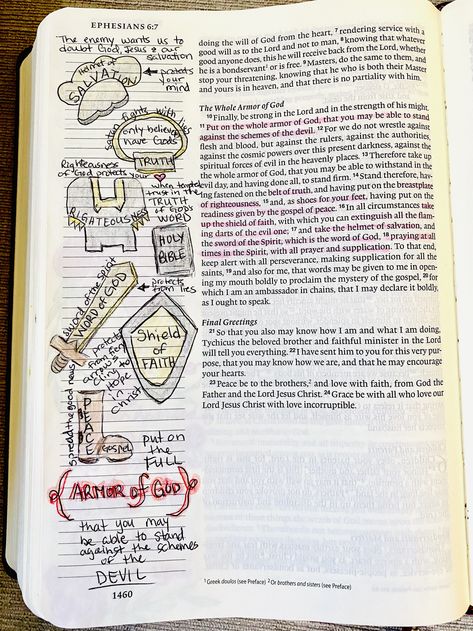 EPHESIANS 6:7
The enemy wants us to
doubt God, Jesus & our
salvation
Helmet of
SALVATION
protects
your
mind
Satan fights with lies
only believers
have God's
TRUTH
Righteousness
of God protects your
when tempted
trust in the
TRUTH
of God's
WORD
RIGHTEOUSNESS
HOLY
BIBLE
Sword of the Spirit
WORD of GOD
protects
from lies
Shield
of
FAITH
protects
from fear
hope
in
Christ
Spread the good news
PEACE
Gospel
put on
the
FULL
ARMOR of GOD
that you may
be able to stand
against the schemes
of the
DEVIL
1460
doing the will of God from the heart, 7 rendering service with a
good will as to the Lord and not to man, 8 knowing that whatever
good anyone does, this he will receive back from the Lord, whether
he is a bondservant1 or is free. 9 Masters, do the same to them, and
stop your threatening, knowing that he who is both their Master
and yours is in heaven, and that there is no partiality with him.
The Whole Armor of God
10 Finally, be strong in the Lord and in the strength of his might.
11 Put on the whole armor of God, that you may be able to stand
against the schemes of the devil. 12 For we do not wrestle against
flesh and blood, but against the rulers, against the authorities,
against the cosmic powers over this present darkness, against the
spiritual forces of evil in the heavenly places. 13 Therefore take up
the whole armor of God, that you may be able to withstand in the
evil day, and having done all, to stand firm. 14 Stand therefore, hav-
ing fastened on the belt of truth, and having put on the breastplate
of righteousness, 15 and, as shoes for your feet, having put on the
readiness given by the gospel of peace. 16 In all circumstances take
up the shield of faith, with which you can extinguish all the flam-
ing darts of the evil one; 17 and take the helmet of salvation, and
the sword of the Spirit, which is the word of God, 18 praying at all
times in the Spirit, with all prayer and supplication. To that end,
keep alert with all perseverance, making supplication for all the
saints, 19 and also for me, that words may be given to me in open-
ing my mouth boldly to proclaim the mystery of the gospel, 20 for
which I am an ambassador in chains, that I may declare it boldly,
as I ought to speak.
Final Greetings
21 So that you also may know how I am and what I am doing,
Tychicus the beloved brother and faithful minister in the Lord
will tell you everything. 22 I have sent him to you for this very pur-
pose, that you may know how we are, and that he may encourage
your hearts.
23 Peace be to the brothers,2 and love with faith, from God the
Father and the Lord Jesus Christ. 24 Grace be with all who love our
Lord Jesus Christ with love incorruptible.
1 Greek doulos (see Preface) 2 Or brothers and sisters (see Preface)